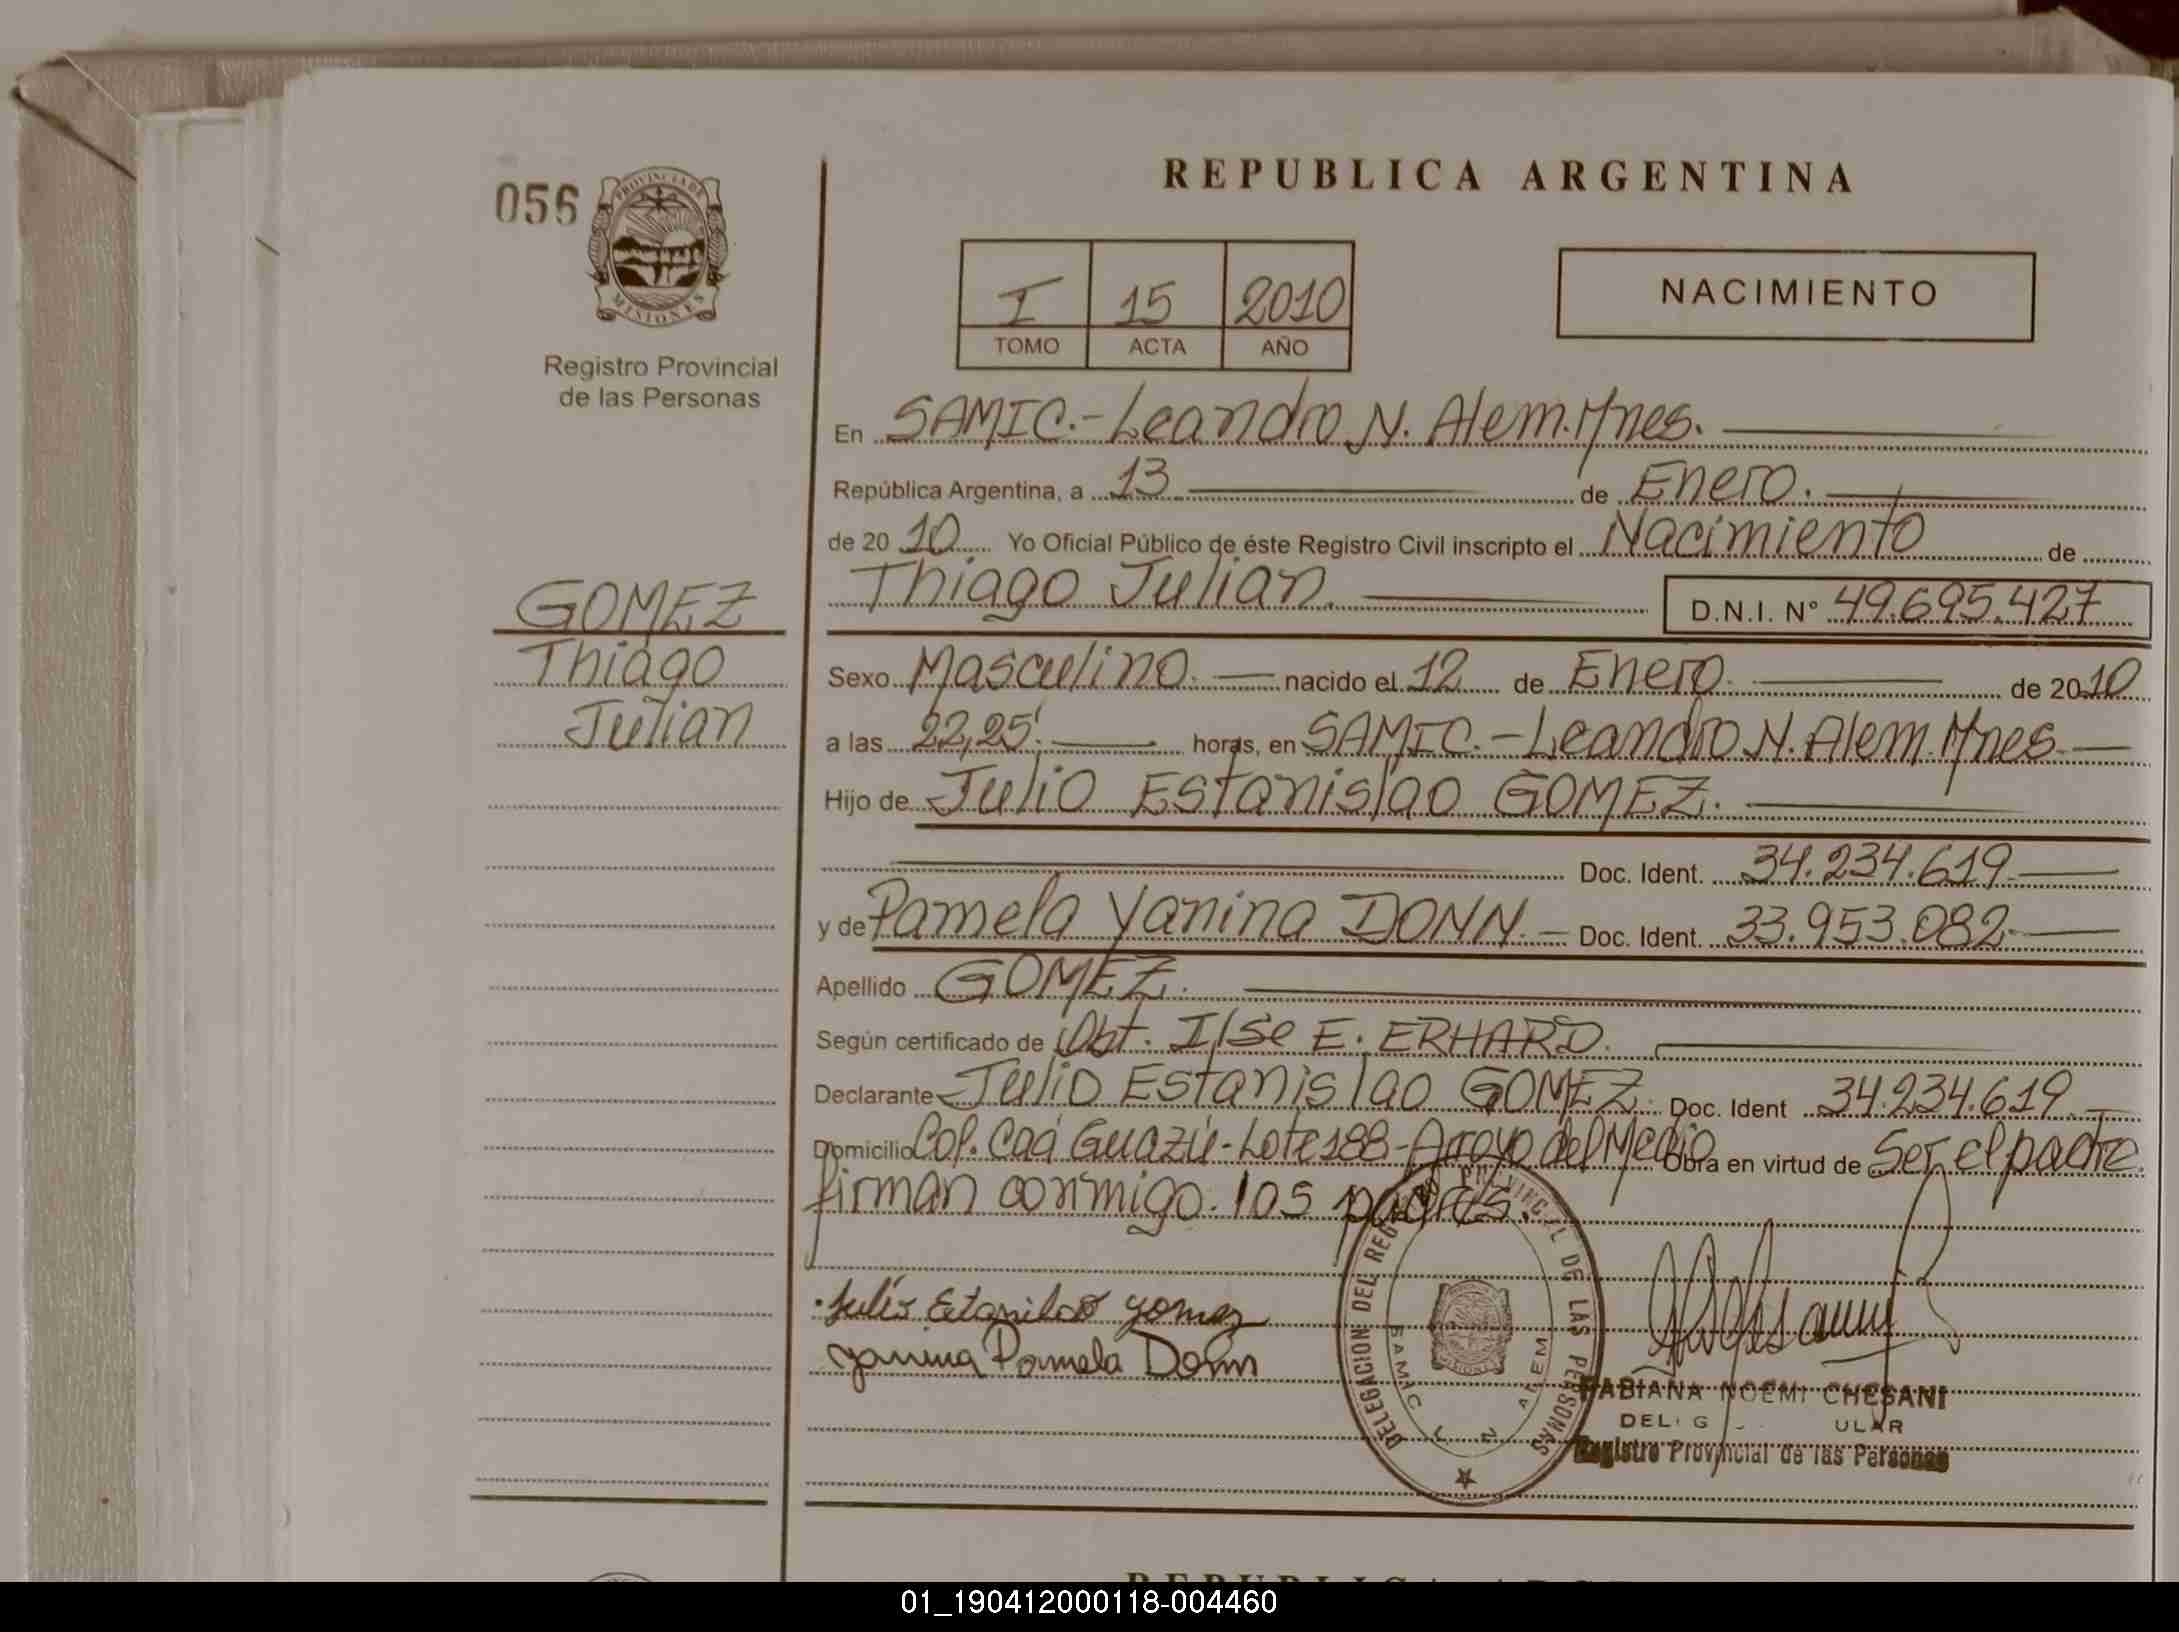 REPUBLICA ARGENTINA
056
PROVINCIA DE
MISIONES
Registro Provincial
de las Personas
I 15 2010
TOMO ACTA AÑO
NACIMIENTO
En SAMIC.-Leandro N. Alem.Mnes.
República Argentina, a 13 de Enero.
de 20 10 Yo Oficial Público de éste Registro Civil inscripto el Nacimiento de
Thiago Julian. D.N.I. N° 49.695.427
GOMEZ
Thiago
Julian
Sexo Masculino. nacido el 12 de Enero. de 2010
a las 22,25. horas, en SAMIC.-Leandro N. Alem.Mnes.
Hijo de Julio Estanislao GOMEZ.
Doc. Ident. 34.234.619.
y de Pamela Yanina DONN. Doc. Ident. 33.953.082.
Apellido GOMEZ.
Según certificado de Obt. Ilse E. ERHARD.
Declarante Julio Estanislao GOMEZ. Doc. Ident 34.234.619.
Domicilio Col. Caá Guazú-Lote 188-Arroyo del Medio Obra en virtud de Ser el padre.
firman conmigo. los padres.
Julio Estanislao Gomez
Yanina Pamela Donn
DELEGACION DEL REGISTRO PROVINCIAL DE LAS PERSONAS
SAMIC L N ALEM
MISIONES
FABIANA NOEMI CHESANI
Registro Provincial de las Personas
01_190412000118-004460